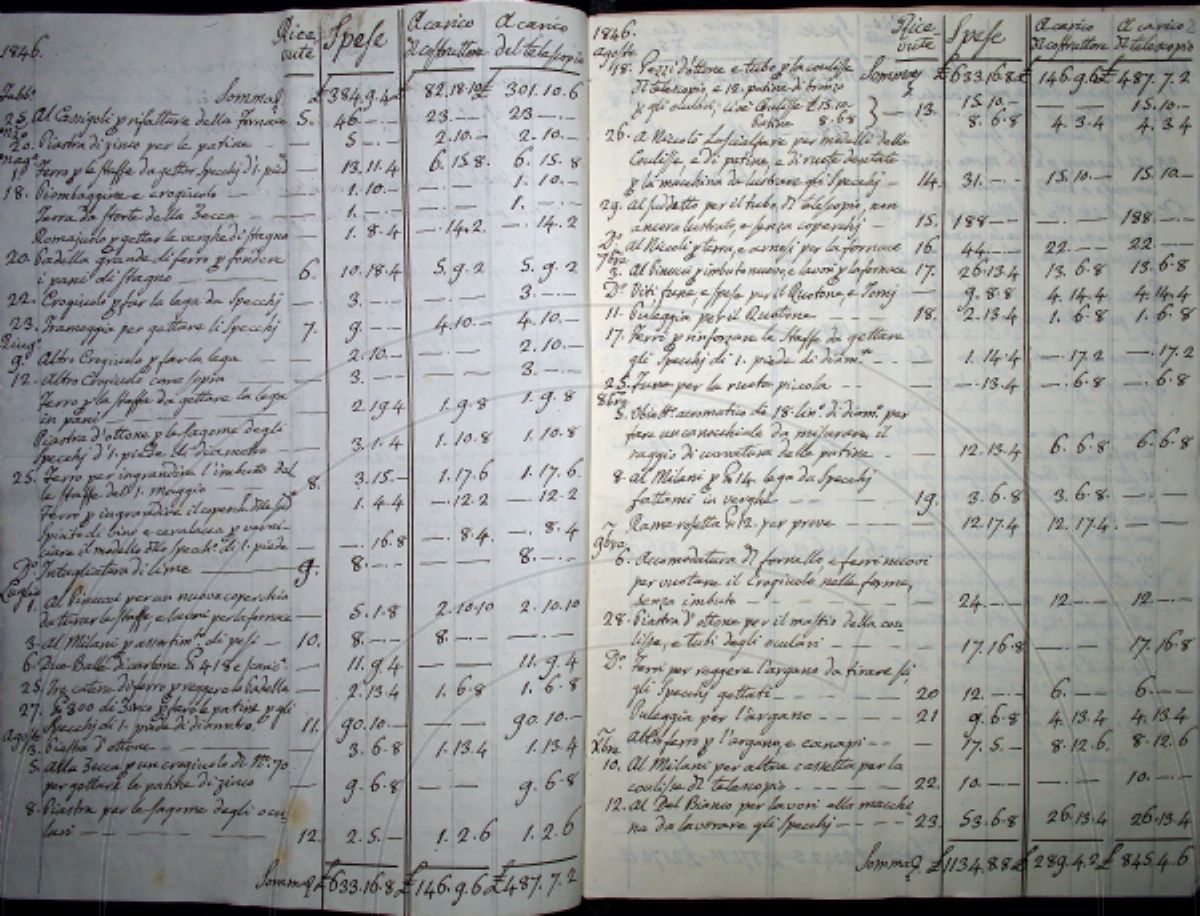 1846.
Rice
vute
Spese
A carico
Dl costruttore
A carico
del telescopio
Febb.°
Somma £ 384.9.4 £ 82.18.10 £ 301.10.6
25. Al Cessigoli p rifattura della Fornace 5. 46.—— 23.—— 23——
20. Piastra di zinco per le patine — 5 —— 2.10.— 2.10.—
Mag.°
1° Ferro p le staffe da gettar Specchj d'1. pied — 13.11.4 6.15.8 6.15.8
18. Piombaggine e crogiuolo — 1.10.— —.—— 1.10.—
Terra da storte della Zecca — 1.—— —.—— 1.——
Romajuolo p gettar le verghe di stagno — 1.8.4 —.14.2 —.14.2
20. Padella grande di ferro p fondere
i pani di stagno — 6. 10.18.4 5.9.2 5.9.2
22. Crogiuolo p far la lega da Specchj — 3.—— —.—— 3.——
23. Tramoggia per gettare li Specchj 7. 9.—— 4.10.— 4.10.—
Giug.°
9. Altro Crogiuolo p far la lega — 2.10.— —.—— 2.10.—
12. Altro Crogiuolo come sopra — 3.—— —.—— 3.——
Ferro p la staffa da gettare la lega
in pani — 2.19.4 1.9.8 1.9.8
Piastra d'ottone p le sagome degli
Specchj d'1. piede di diametro — 3.1.4 1.10.8 1.10.8
25. Ferro per ingrandire l'imbuto del
le staffe dell'1. maggio — 8. 3.15.— 1.17.6 1.17.6
Ferro p ingrandire il coperch. — 1.4.4 —.12.2 —.12.2
Spirito di vino e ceralacca p verni-
ciare il modello dello Specch.° di 1. piede — —.16.8 —.8.4 —.8.4
D.° Intagliatura di lime — 9. 8.—— —.—— 8.——
Luglio
1. Al Pinucci per un nuovo coperchio
da tirar le staffe, e lavori per la fornace — 5.1.8 2.10.10 2.10.10
3. Al Milani p assortim.to di pesi — 10. 8.—— 8.—— —.——
6. Due Balle di carbone — 11.9.4 —— 11.9.4
25. Tre catene di ferro p reggere la Padella — 2.13.4 1.6.8 1.6.8
27. £ 300 di Zinco p fare le patine p gli
Specchj di 1. piede di diametro 11. 90.10.— —.—— 90.10.—
Agosto
3. Piastra d'ottone — 3.6.8 1.13.4 1.13.4
5. Alla Zecca p un crogiuolo di N.° 70
per gettare le patine di zinco — 9.6.8 —.—— 9.6.8
8. Piastra per le sagome degli ocu
lari — 12. 2.5.— 1.2.6 1.2.6
Somma £ 633.16.8 £ 146.9.6 £ 487.7.2
1846.
Rice
vute
Spese
A carico
Dl costruttore
A carico
Dl telescopio
agosto
Somma £ 633.16.8 £ 146.9.6 £ 487.7.2
18. Pezzi d'ottone e tubo p la coulisse
Dl telescopio, e 12. patine di bronzo
p gli oculari, cioè Coulisse £ 15.10.— 13. 15.10.— —— 15.10.—
Patine 8.6.8 8.6.8 4.3.4 4.3.4
26. A Niccolò per modello della
Coulisse, e di patine, e di ruote dentate
p la macchina da lustrare gli Specchj — 14. 31.—— 15.10.— 15.10.—
29. Al suddetto per il tubo Dl telescopio, non
ancora lustrato, e senza coperchj — 15. 188.—— —.—— 188.——
D.° Al Niccoli p terra, e arnesi per la fornace 16. 44.—— 22.—— 22.——
7bre
3. Al Pinucci p imbuto nuovo, e lavori p la fornace 17. 26.13.4 13.6.8 13.6.8
D.° Viti, fune, e spese per il Rustone, e Tornj — 9.8.8 4.14.4 4.14.4
11. Puleggia per il Rustone — 18. 2.13.4 1.6.8 1.6.8
17. Ferro p rinforzare le staffe da gettare
gli Specchj di 1. piede di diam.° — 1.14.4 —.17.2 —.17.2
25. Fune per la ruota piccola — —.13.4 —.6.8 —.6.8
8bre
5. Obiett.° acromatico di 18. lin.e di diam.° per
fare un canocchiale da misurare il
raggio di curvatura delle patine — 12.13.4 6.6.8 6.6.8
8. Al Milani p £ 14. lega da Specchj
fattami in verghe — 19. 3.6.8 3.6.8 —.——
Rame rosetta £ 12. per prove — 12.17.4 12.17.4 —.——
9bre
6. Accomodatura Dl fornello, e ferri nuovi
per vuotare il Crogiuolo nelle forme,
senza imbuto — 24.—— 12.—— 12.——
28. Piastra d'ottone per il mastio della cou-
lisse, e tubi degli oculari — 17.16.8 —.—— 17.16.8
D.° Ferri per reggere l'argano da tirare sù
gli Specchj gettati — 20 12.—— 6.—— 6.——
Puleggia per l'argano — 21 9.6.8 4.13.4 4.13.4
Xbre
Altro ferro p l'argano, e canapi — 17.5.— 8.12.6 8.12.6
10. Al Milani per altra cassetta per la
coulisse Dl telescopio — 22. 10.—— —.—— 10.——
12. Al Del Bianco per lavori alla macchi
na da lavorare gli Specchj — 23. 53.6.8 26.13.4 26.13.4
Somma £ 1134.8.8 £ 289.4.2 £ 845.4.6